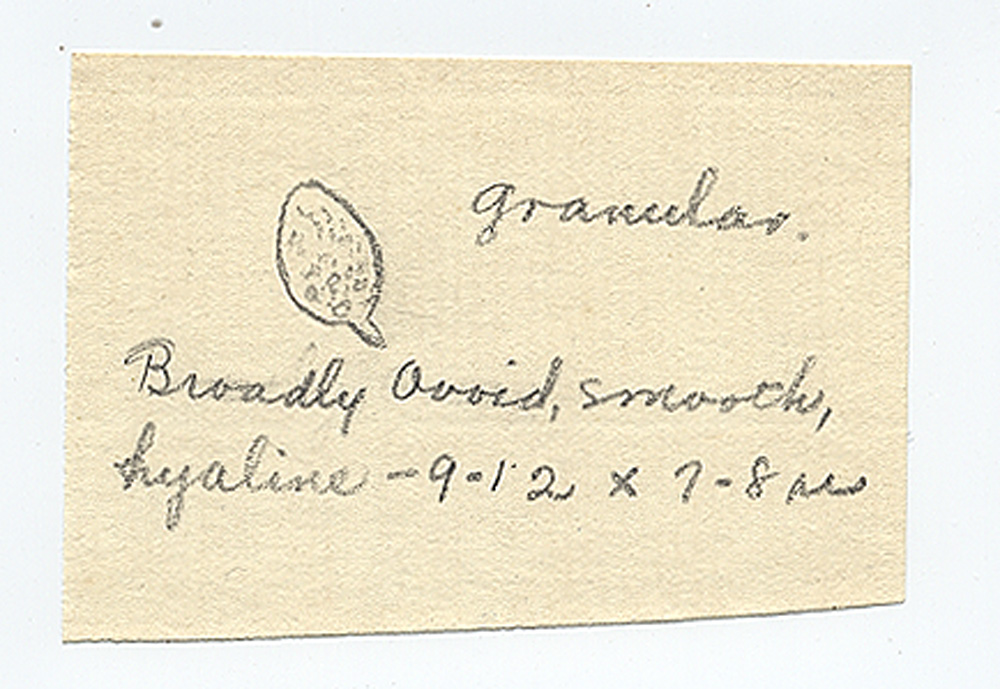 granular.
Broadly Ovoid, smooth,
hyaline - 9-12 x 7-8 mu